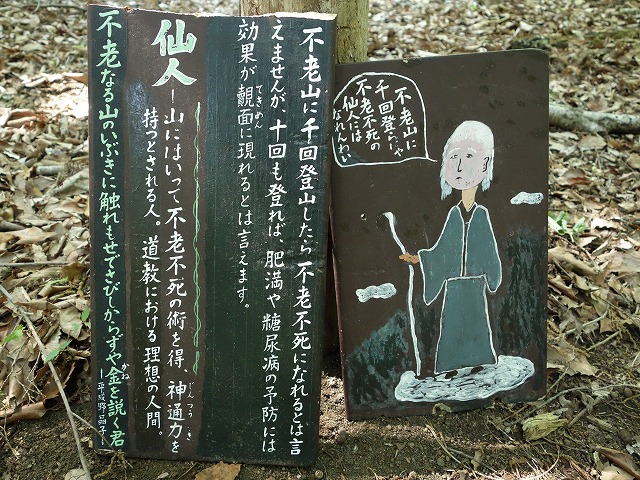 不老山に千回登山したら不老不死になれるとは言
えませんが、十回も登れば、肥満や糖尿病の予防には
効果が覿面に現れるとは言えます。
てきめん
仙人―山にはいって不老不死の術を得、神通力を
じんつうりき
持つとされる人。道教における理想の人間。
不老なる山のいぶきに触れもせでさびしからずや金を説く君
かね
不老山に
千回登らにゃ
不老不死の
仙人には
なれんわい